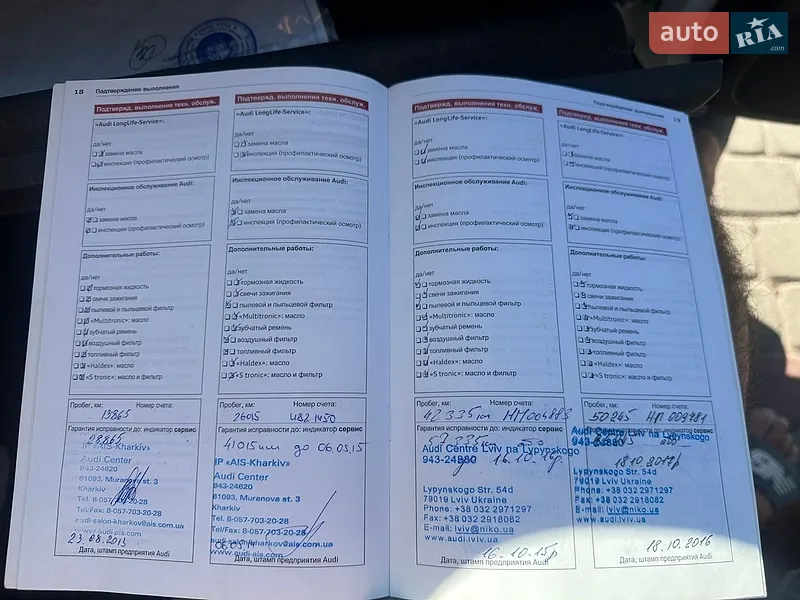 auto RIA .com
18 Подтверждение выполнения
Подтвержд. выполнения техн. обслуж.
«Audi LongLife-Service»:
да/нет
замена масла
инспекция (профилактический осмотр)
Инспекционное обслуживание Audi:
да/нет
замена масла
инспекция (профилактический осмотр)
Дополнительные работы:
да/нет
тормозная жидкость
свечи зажигания
пылевой и пыльцевый фильтр
«Multitronic»: масло
зубчатый ремень
воздушный фильтр
топливный фильтр
«Haldex»: масло
«S tronic»: масло и фильтр
Пробег, км: Номер счета:
13865
Гарантия исправности до: индикатор сервис
28865
IP «AIS-Kharkiv»
Audi Center
943-24620
61093, Muranova st. 3
Kharkiv
Tel. 8-057-703-20-28
Tel/Fax: 8-057-703-20-28
audi-salon-kharkov@ais.com.ua
www.audi-ais.com
23.08.2013
Дата, штамп предприятия Audi
Подтвержд. выполнения техн. обслуж.
«Audi LongLife-Service»:
да/нет
замена масла
инспекция (профилактический осмотр)
Инспекционное обслуживание Audi:
да/нет
замена масла
инспекция (профилактический осмотр)
Дополнительные работы:
да/нет
тормозная жидкость
свечи зажигания
пылевой и пыльцевый фильтр
«Multitronic»: масло
зубчатый ремень
воздушный фильтр
топливный фильтр
«Haldex»: масло
«S tronic»: масло и фильтр
Пробег, км: Номер счета:
26015
Гарантия исправности до: индикатор сервис
41015 км до 06.03.15
IP «AIS-Kharkiv»
Audi Center
943-24620
61093, Muranova st. 3
Kharkiv
Tel. 8-057-703-20-28
Tel/Fax: 8-057-703-20-28
audi-salon-kharkov@ais.com.ua
www.audi-ais.com
Дата, штамп предприятия Audi
Подтвержд. выполнения техн. обслуж.
«Audi LongLife-Service»:
да/нет
замена масла
инспекция (профилактический осмотр)
Инспекционное обслуживание Audi:
да/нет
замена масла
инспекция (профилактический осмотр)
Дополнительные работы:
да/нет
тормозная жидкость
свечи зажигания
пылевой и пыльцевый фильтр
«Multitronic»: масло
зубчатый ремень
воздушный фильтр
топливный фильтр
«Haldex»: масло
«S tronic»: масло и фильтр
Пробег, км: Номер счета:
42 335 км
Гарантия исправности до: индикатор сервис
57 335 км
Audi Centre Lviv na Lypynskogo
943-24830
Lypynskogo Str. 54d
79019 Lviv Ukraine
Phone: +38 032 2971297
Fax: +38 032 2918082
E-mail: lviv@niko.ua
www.audi.lviv.ua
16.10.15р
Дата, штамп предприятия Audi
Подтверждение выполнения 19
Подтвержд. выполнения техн. обслуж.
«Audi LongLife-Service»:
да/нет
замена масла
инспекция (профилактический осмотр)
Инспекционное обслуживание Audi:
да/нет
замена масла
инспекция (профилактический осмотр)
Дополнительные работы:
да/нет
тормозная жидкость
свечи зажигания
пылевой и пыльцевый фильтр
«Multitronic»: масло
зубчатый ремень
воздушный фильтр
топливный фильтр
«Haldex»: масло
«S tronic»: масло и фильтр
Пробег, км: Номер счета:
50245
Гарантия исправности до: индикатор сервис
Audi Centre Lviv na Lypynskogo
18.10.2017р
Lypynskogo Str. 54d
79019 Lviv Ukraine
Phone: +38 032 2971297
Fax: +38 032 2918082
E-mail: lviv@niko.ua
www.audi.lviv.ua
18.10.2016
Дата, штамп предприятия Audi